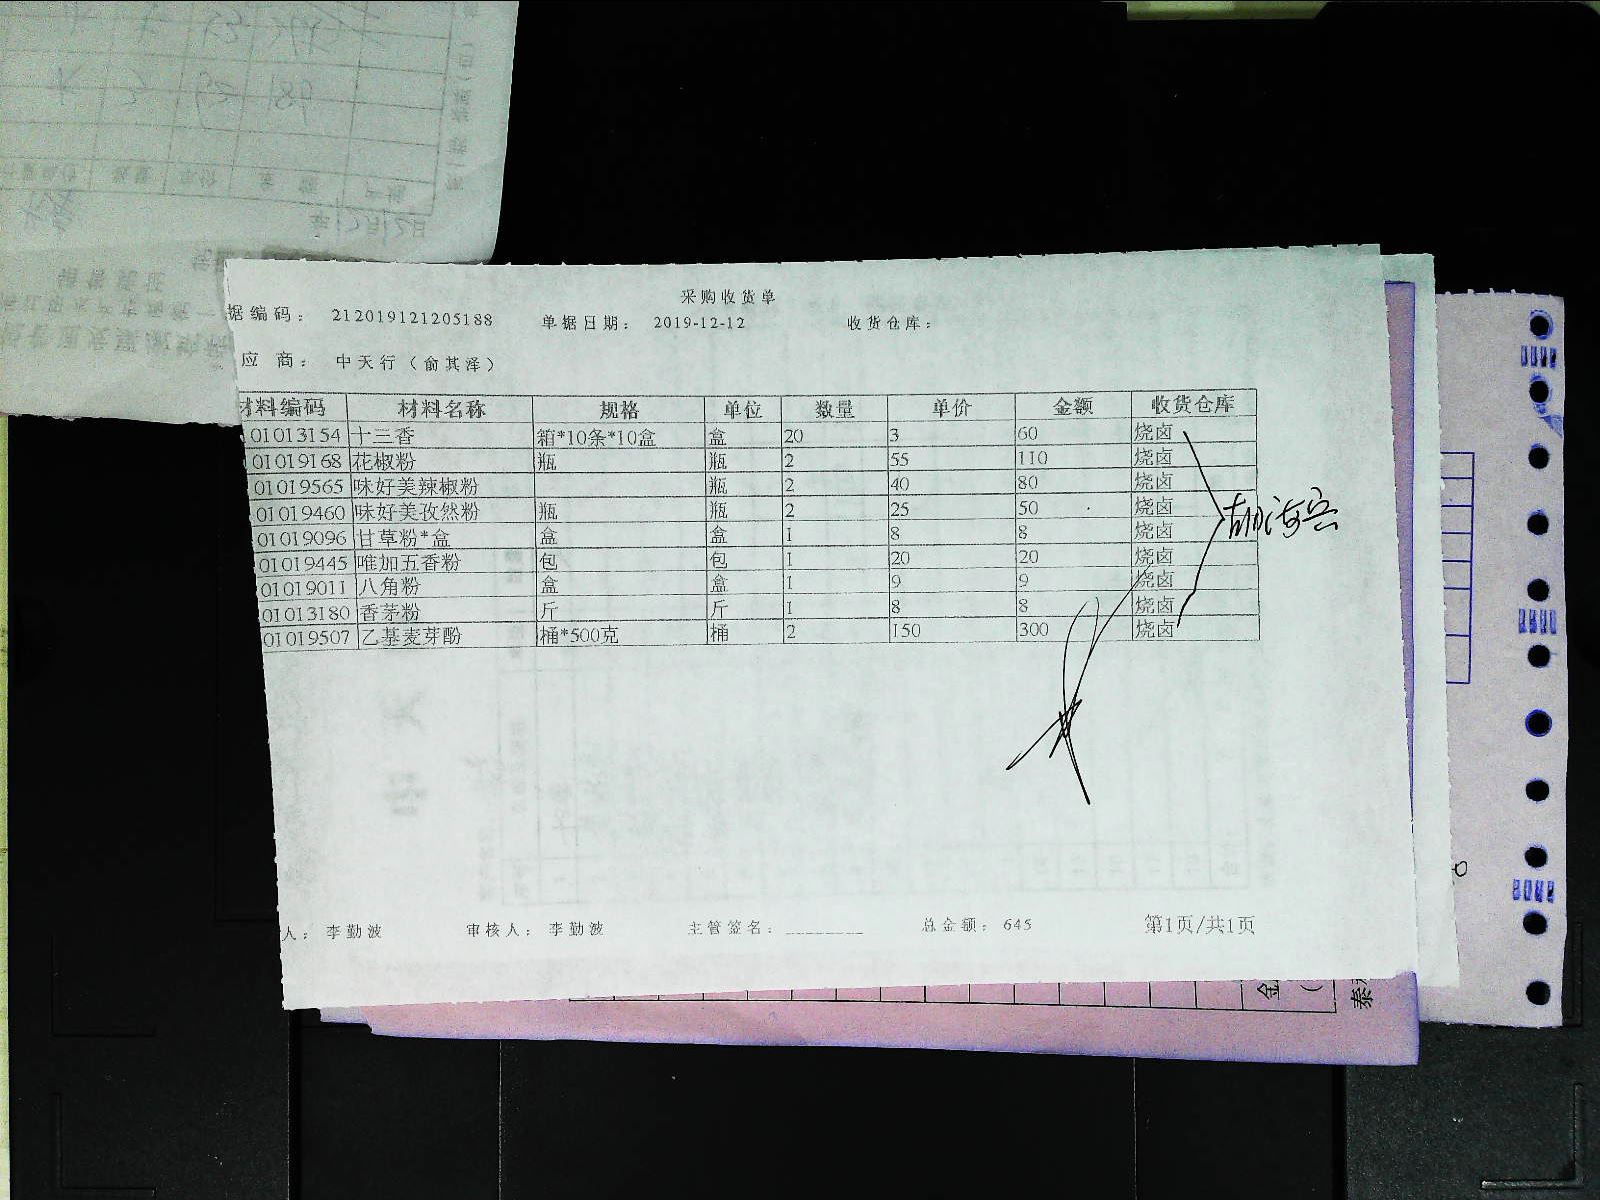 采购收货单
据编码： 212019121205188 单据日期： 2019-12-12 收货仓库：
应 商： 中天行（俞其泽）
材料编码 材料名称 规格 单位 数量 单价 金额 收货仓库
01013154 十三香 箱*10条*10盒 盒 20 3 60 烧卤
01019168 花椒粉 瓶 瓶 2 55 110 烧卤
01019565 味好美辣椒粉 瓶 2 40 80 烧卤
01019460 味好美孜然粉 瓶 瓶 2 25 50 烧卤
01019096 甘草粉*盒 盒 盒 1 8 8 烧卤
01019445 唯加五香粉 包 包 1 20 20 烧卤
01019011 八角粉 盒 盒 1 9 9 烧卤
01013180 香茅粉 斤 斤 1 8 8 烧卤
01019507 乙基麦芽酚 桶*500克 桶 2 150 300 烧卤
人： 李勤波 审核人： 李勤波 主管签名： 总金额： 645 第1页/共1页